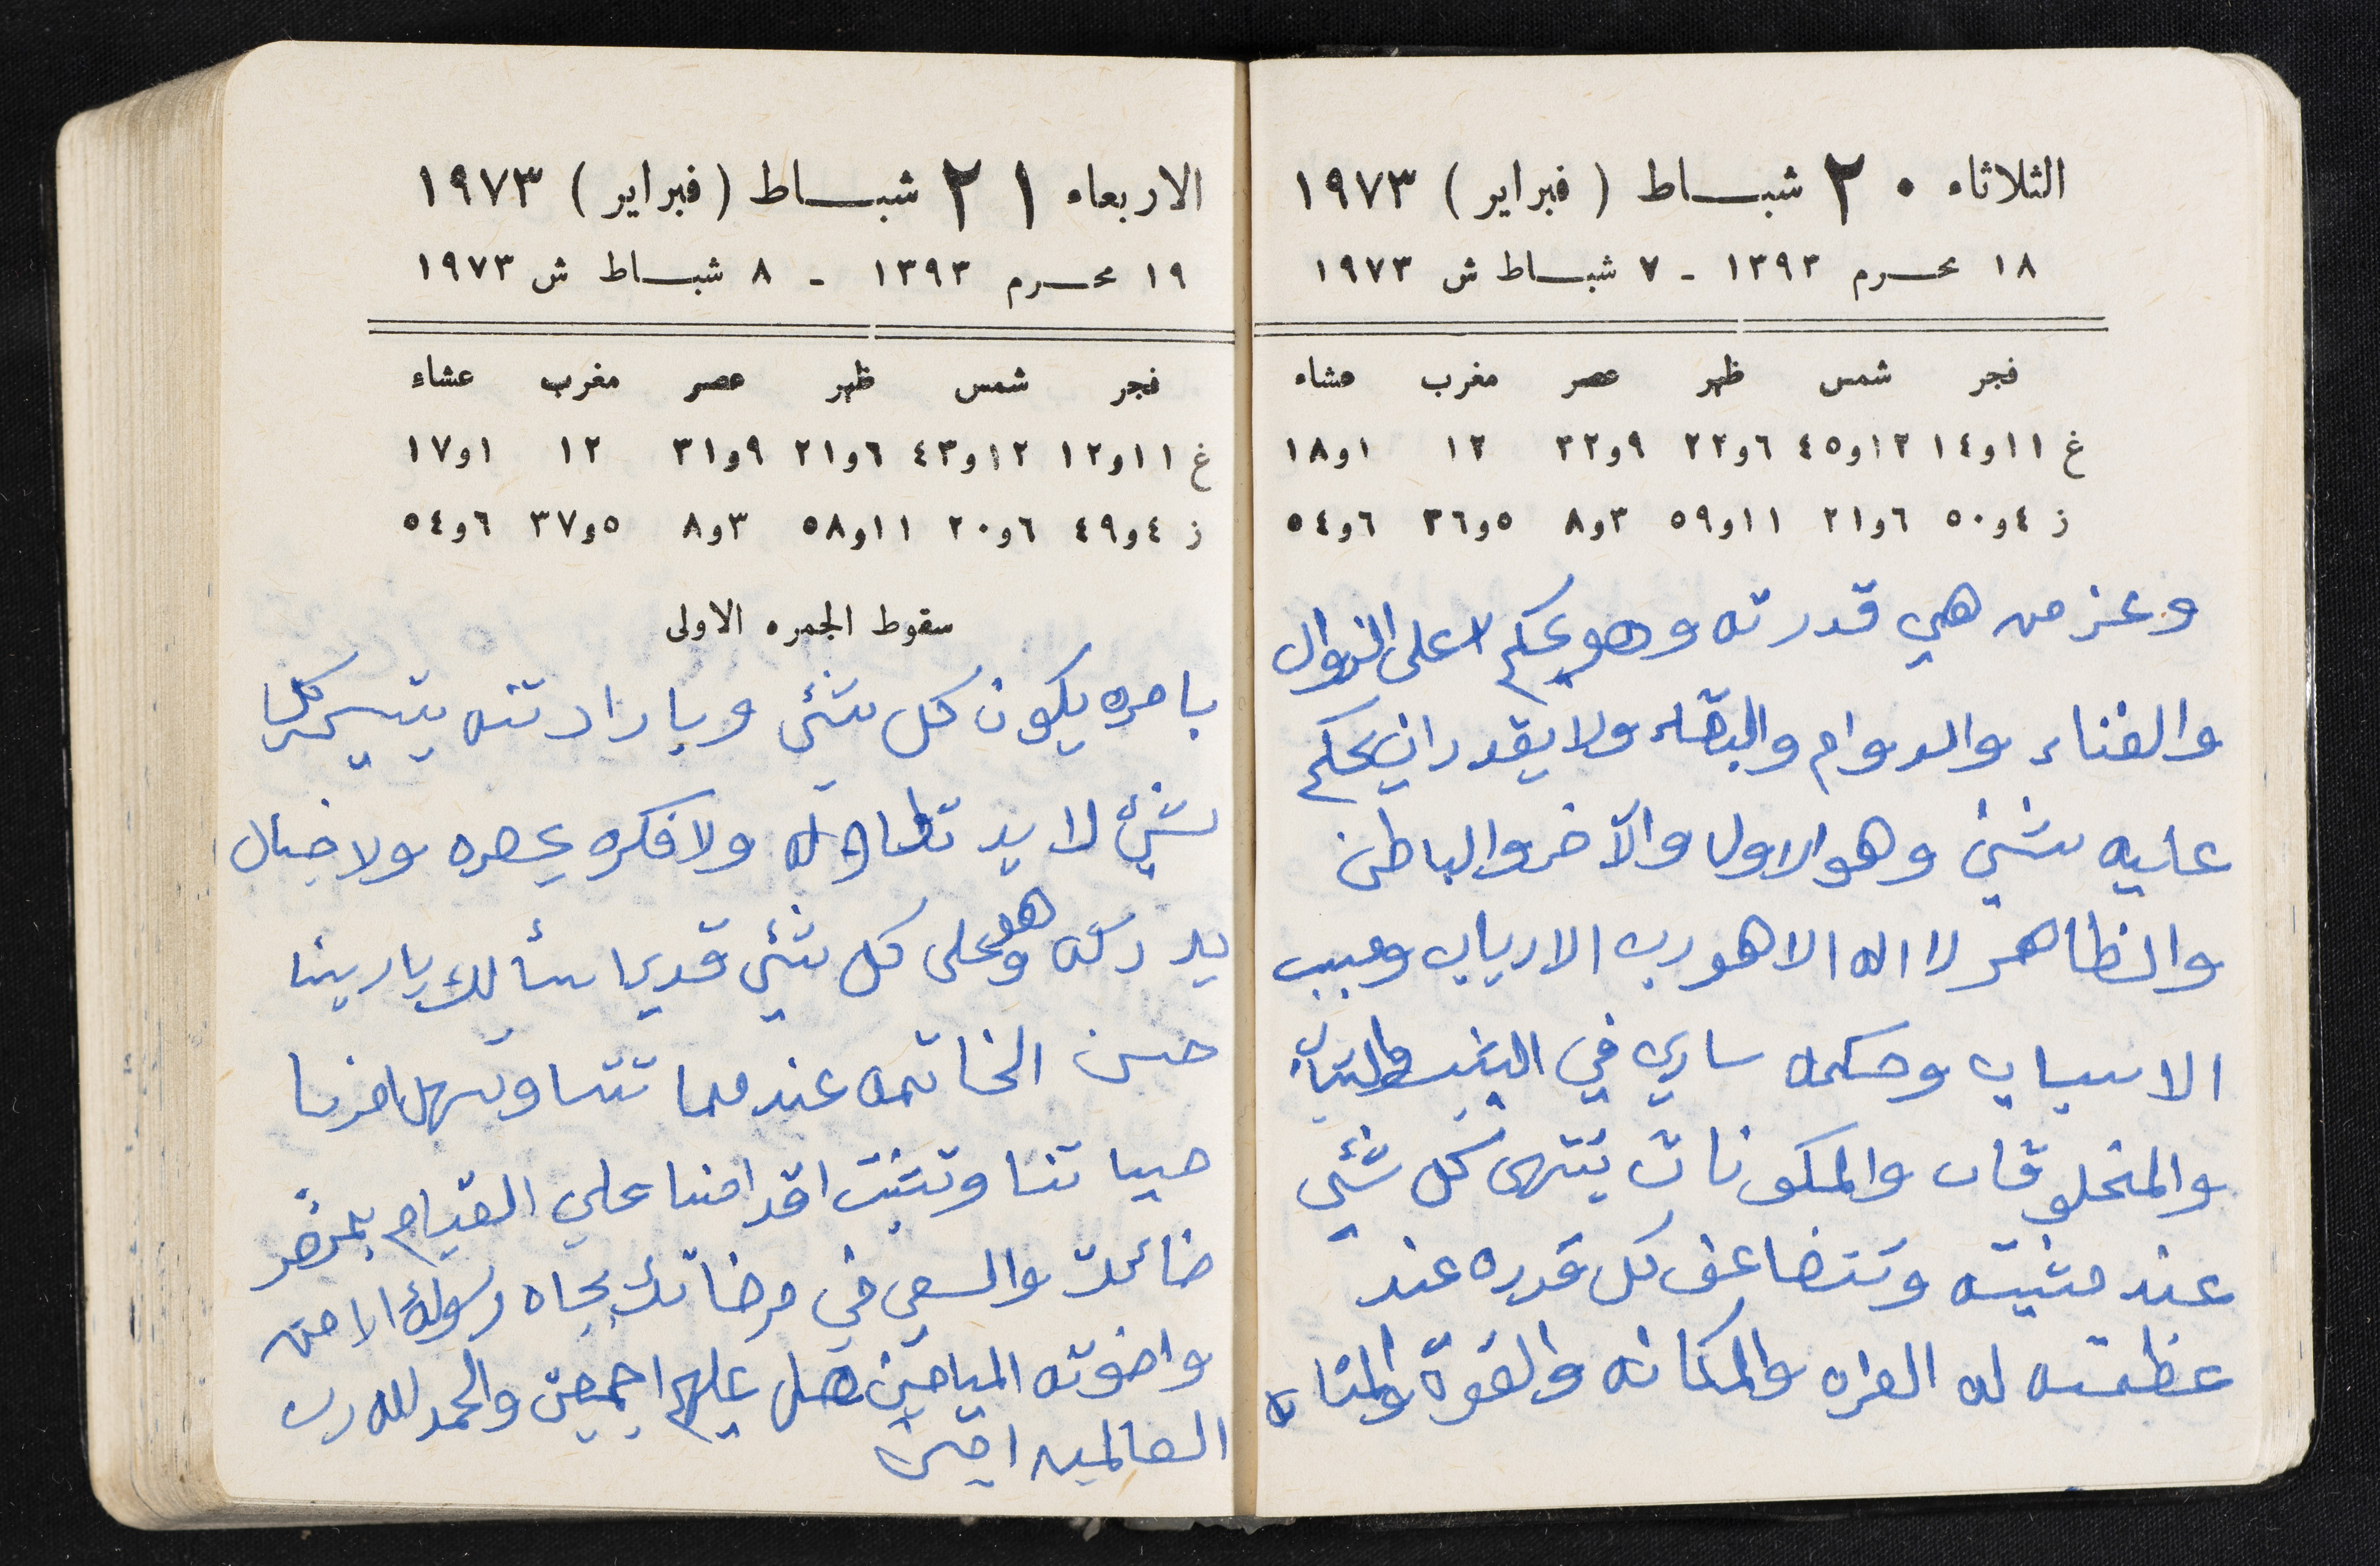 الثلاثاء ٢٠ شباط (فبراير) ١٩٧٣
١٨ محرم ١٣٩٣ - ٧ شباط ش ١٩٧٣
فجر شمس ظهر عصر مغرب عشاء
غ ١١و١٤ ١٢و٤٥ ٦و٢٢ ٩و٣٢ ١٢ ١و١٨
ز ٤و٥٠ ٦و٢١ ١١و٥٩ ٣و٨ ٥و٣٦ ٦و٥٤
وعز من هي قدرته وهو يحكم على الزوال
والفناء والدوام والبقاء ولا يقدر ان يحكم
عليه شئ وهو الاول والآخر والباطن
والظاهر لا اله الا هو رب الارباب ومسبب
الاسباب وحكمه ساري في
والمخلوقات والمكونات ينتهى كل شئي
عند مشيئته وتتضاعف كل قدره عند
عظمته له العزه والمكانه والقوة
الاربعاء ٢١ شباط (فبراير) ١٩٧٣
١٩ محرم ١٣٩٣ - ٨ شباط ش ١٩٧٣
فجر شمس ظهر عصر مغرب عشاء
غ ١١و١٢ ١٢و٤٣ ٦و٢١ ٩و٣١ ١٢ ١و١٧
ز ٤و٤٩ ٦و٢٠ ١١و٥٨ ٣و٨ ٥و٣٧ ٦و٥٤
سقوط الجمره الاولى
بامره يكون كل شئي وبارادته يتيسر كل
شئ لا يد تطاوله ولا فكره يحصره ولا خيال
يدركه وهو على كل شئي قدير اسألك يا ربنا
حسن الخاتمه عندما تشا وتسهل امر
حياتنا وتثبت اقدامنا علي القيام
والسعي في مرضاتك بجاه رسولك الامين
واخوته الميامين صل عليهم اجمعين والحمد لله رب
العالمين امين